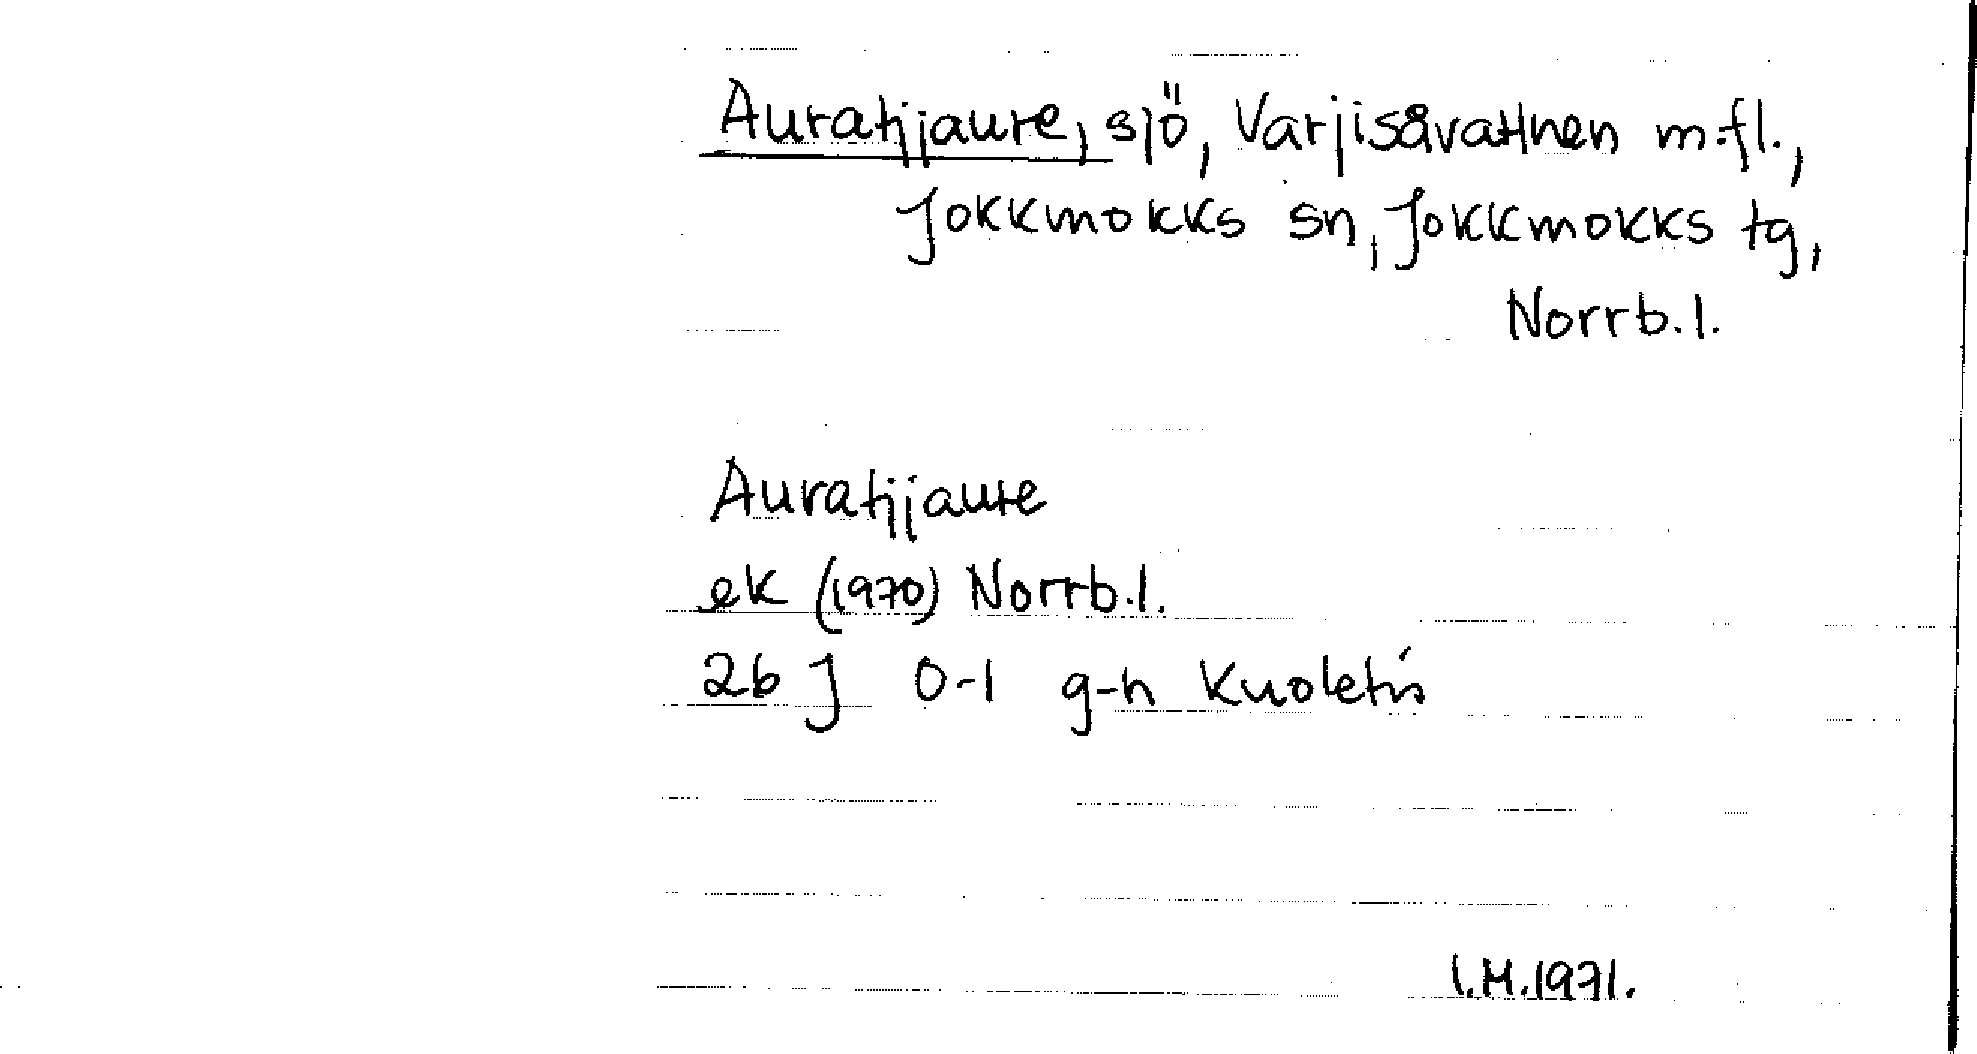 Auratjjaure, sjö, Varjisåvattnen m.fl.,
Jokkmokks sn, Jokkmokks tg,
Norrb.l.
Auratjjaure
ek (1970) Norrb.l.
26 J 0-1 g-h Kuoletis
I.M.1971.